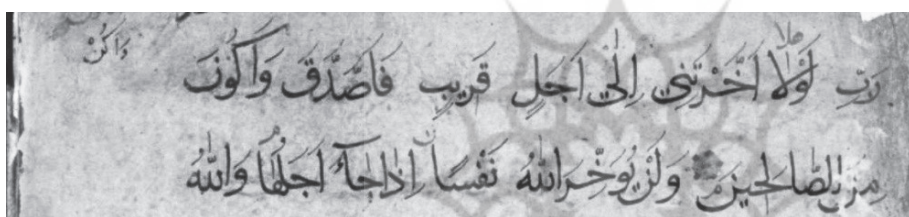 وَاَكُنْ
رَبِّ لَوْلَآ اَخَّرْتَنِي اِلٰٓي اَجَلٍ قَرِيبٍ فَاَصَّدَّقَ وَاَكُونَ
مِنَ الصَّالِحِينَ وَلَنْ يُوَخِّرَ اللّٰهُ نَفْسًا اِذَا جَآءَ اَجَلُهَا وَاللّٰهُ